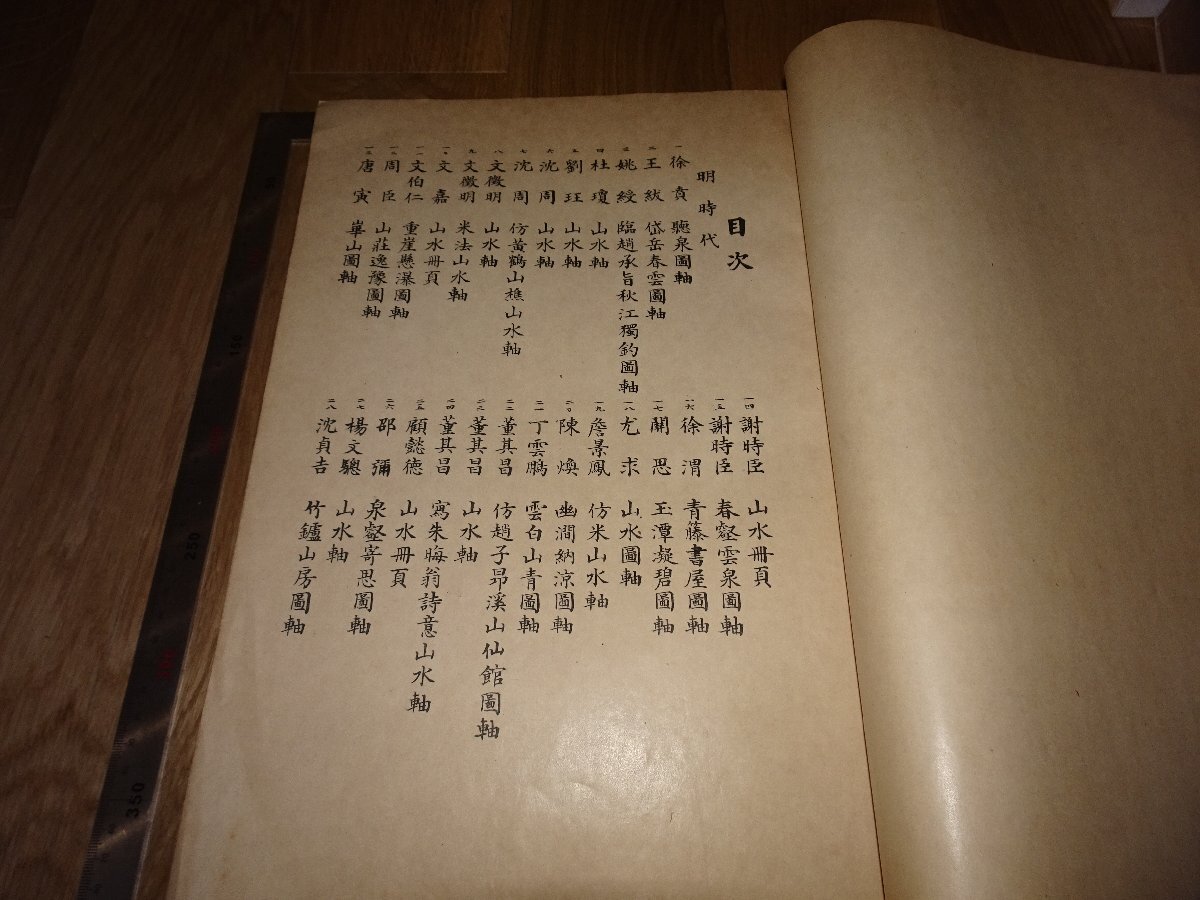 目次
明時代
一 徐賁 聽泉圖軸
二 王紱 岱岳春雲圖軸
三 姚綬 臨趙承旨秋江獨釣圖軸
四 杜瓊 山水軸
五 劉玨 山水軸
六 沈周 山水軸
七 沈周 仿黃鶴山樵山水軸
八 文徵明 山水軸
九 文徵明 米法山水軸
一〇 文嘉 山水冊頁
一一 文伯仁 重崖懸瀑圖軸
一二 周臣 山莊逸豫圖軸
一三 唐寅 華山圖軸
一四 謝時臣 山水冊頁
一五 謝時臣 春壑雲泉圖軸
一六 徐渭 青籐書屋圖軸
一七 關思 玉潭凝碧圖軸
一八 尤求 山水圖軸
一九 詹景鳳 仿米山水軸
二〇 陳煥 幽澗納涼圖軸
二一 丁雲鵬 雲白山青圖軸
二二 董其昌 仿趙子昂溪山仙館圖軸
二三 董其昌 山水軸
二四 董其昌 寫朱晦翁詩意山水軸
二五 顧懿德 山水冊頁
二六 邵彌 泉壑寄思圖軸
二七 楊文驄 山水軸
二八 沈貞吉 竹鑪山房圖軸
150
250
350